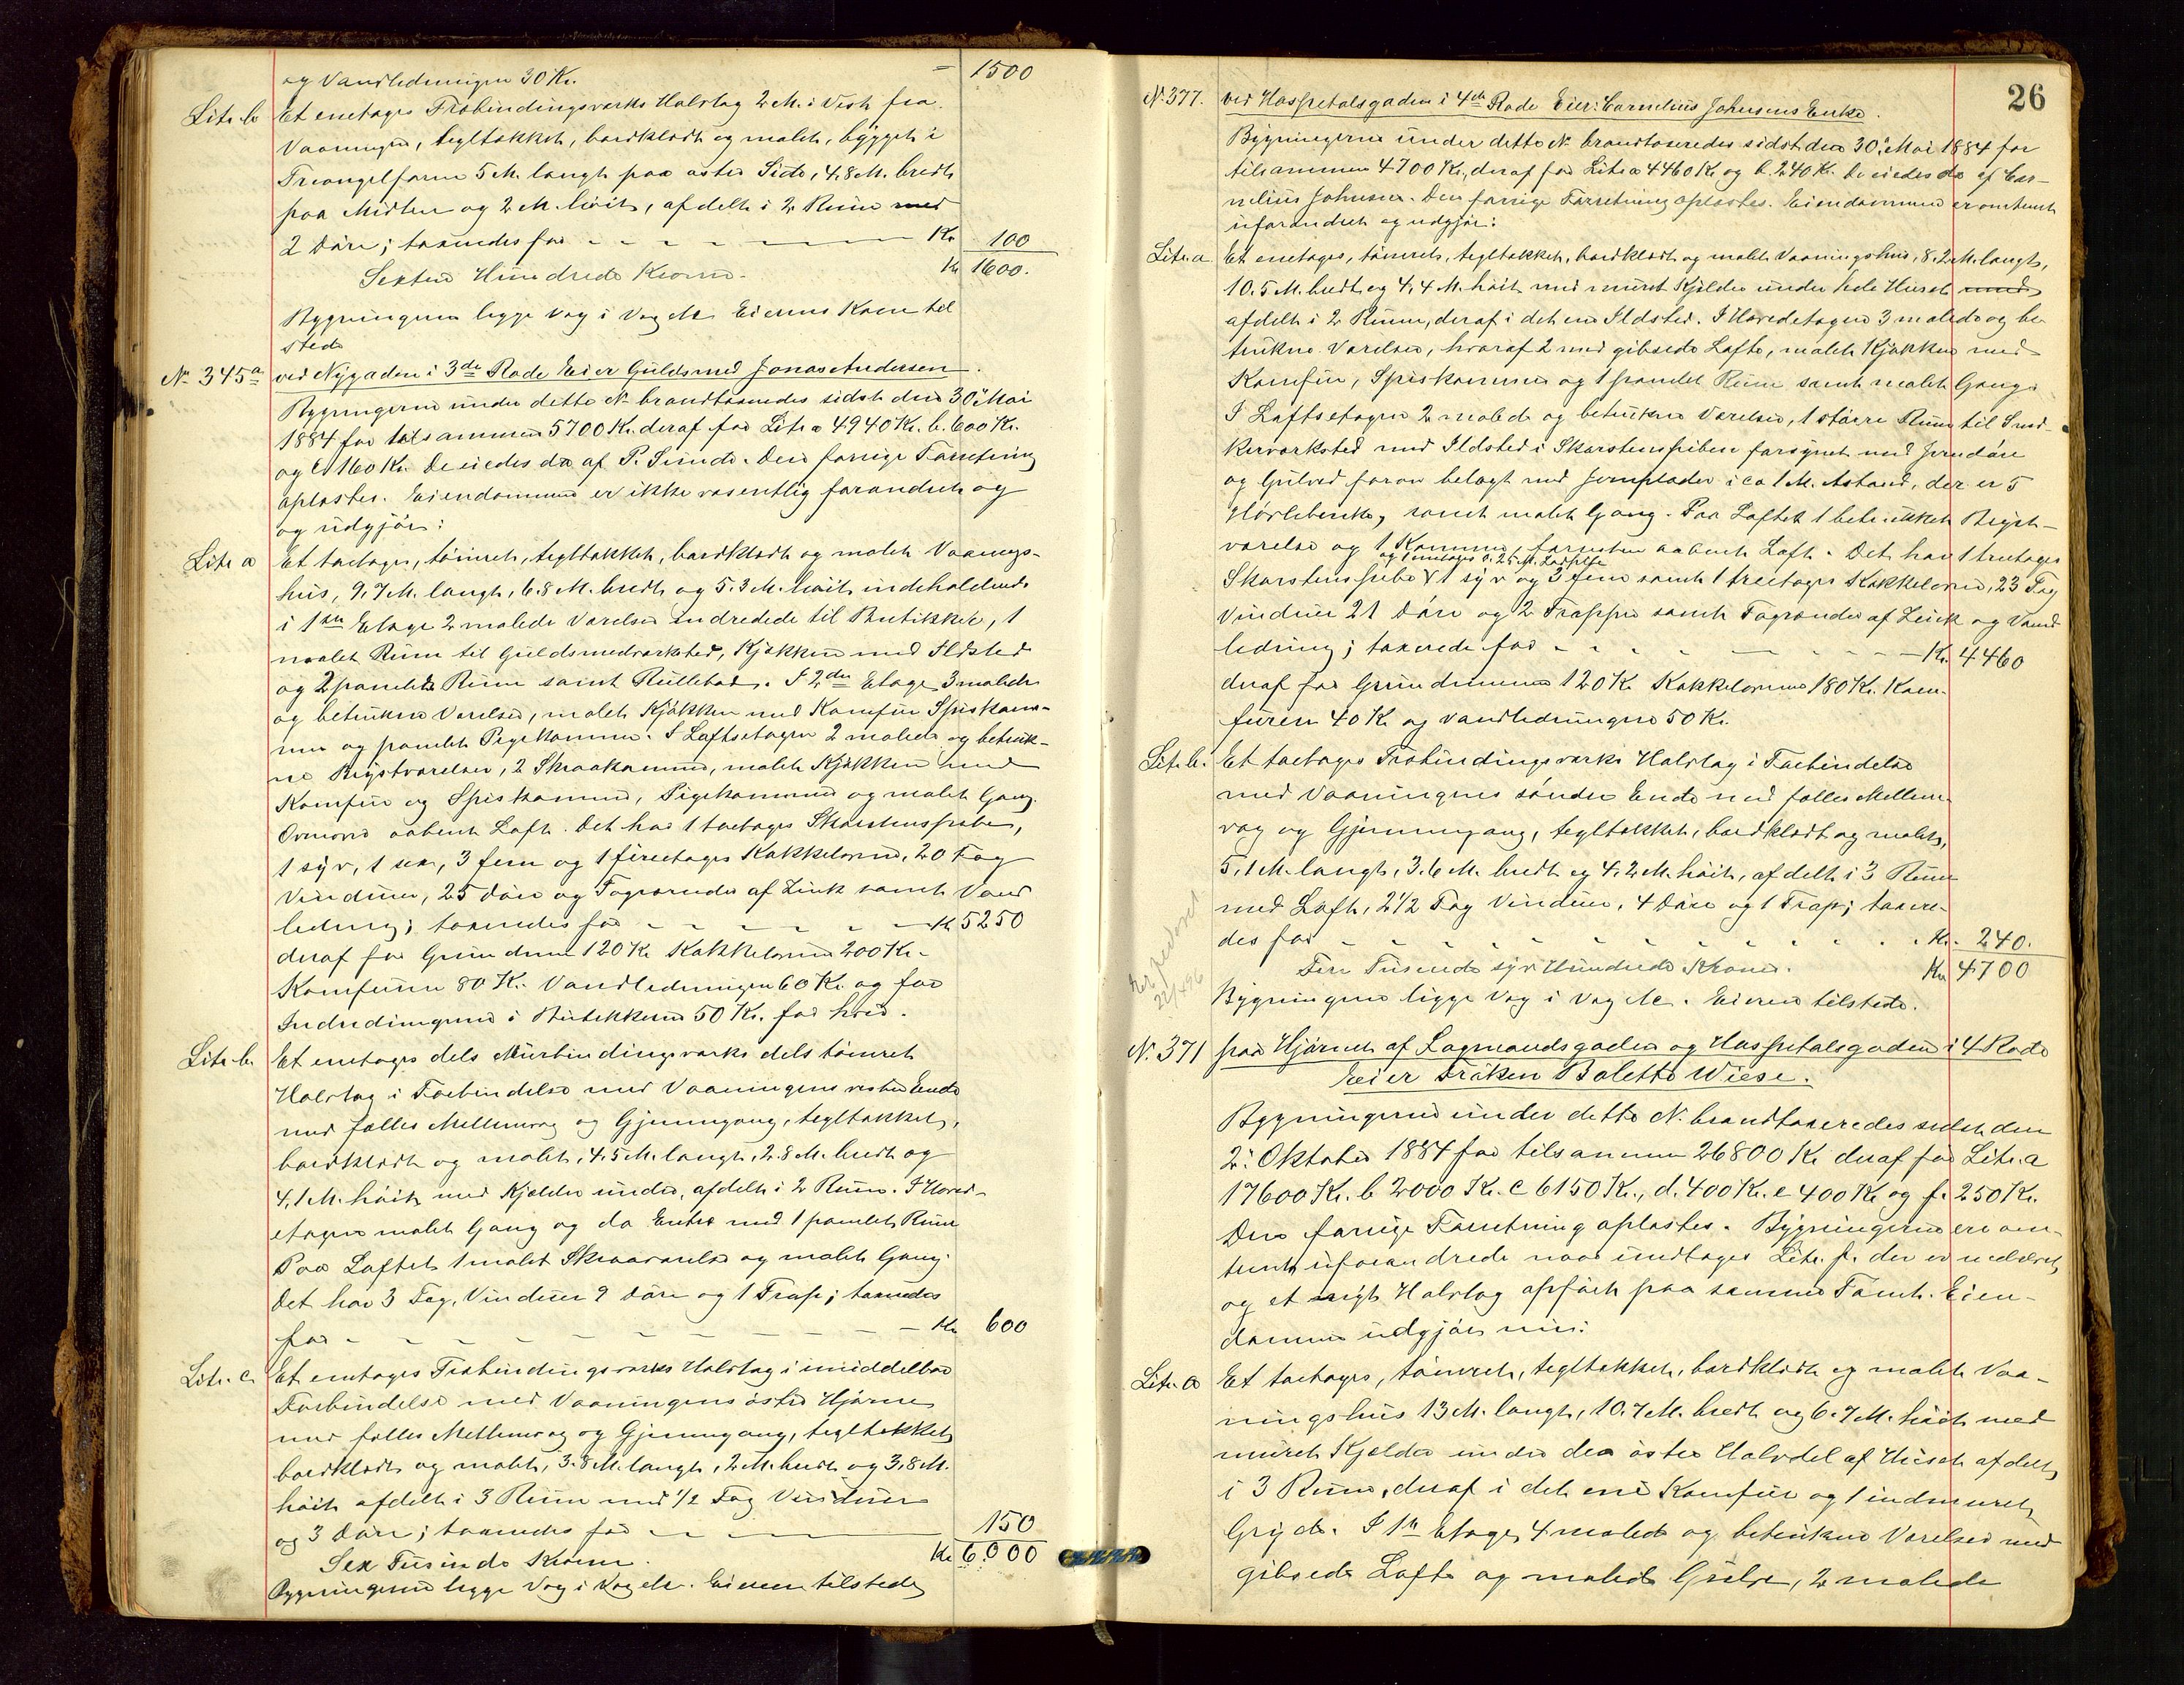 og Vandledningen 30 Kr. — 1500
Litr. b. Et enetages Træbindingsværks Halvtag 2 M. i Vest fra
Vaaningen, tegltækket, bordklædt og malet, bygget i
Triangelform 5 M. langt paa østre Side, 4,8 M. bredt
paa Midten og 2 M. höit, afdelt i 2 Rum med
2 Döre; taxeredes for - - - Kr 100
Sexten Hundrede Kroner. Kr 1600.
Bygningerne ligge Væg i Væg M. Eierens Kone til
stede
No 345a ved Nygaden i 3de Rode Eier Guldsmed Jonas Andersen.
Bygningerne under dette No brandtaxeredes sidst den 30. Mai
1884 for tilsammen 5700 Kr. deraf for Litr a 4940 Kr. b. 600 Kr.
og c. 160 Kr. De eiedes da af P. Sunde. Den forrige Forretning
oplæstes. Eiendommen er ikke væsentlig forandret og
og udgjör:
Litr a Et toetages, tömret, tegltækket, bordklædt og malet Vaanings-
hus, 9,7 M. langt, 6.8 M. bredt og 5.3 M. höit indeholdende
i 1ste Etage 2 malede Værelser indredede til Butikker, 1
malet Rum til Guldsmedværksted, Kjökken med Ildsted
og 2 panelede Rum samt Rullebod. I 2den Etage 3 malede
og betrukne Værelser, malet Kjökken med Komfur Spiskam-
mer og panelet Pigekammer. I Loftsetagen 2 malede og betruk-
ne Brystværelser, 2 Skraakammer, malet Kjökken med
Komfur og Spiskammer, Pigekammer og malet Gang.
Ovenover aabent Loft. Det har 1 toetages Skorstenspibe,
1 syv, 1 sex, 3 fem og 1 fireetages Kakkelovne, 20 Fag
Vinduer, 25 Döre og Tagrender af Zink samt Vand
ledning; taxeredes for - - - Kr 5250
deraf for Grundmuren 120 Kr Kakkelovnene 200 Kr.
Komfurene 80 Kr. Vandledningen 60 Kr. og for
Indredningerne i Butikkerne 50 Kr. for hver.
Litr. b. Et enetages dels Murbindingsværks dels tömret
Halvtag i Forbindelse med Vaaningens vestre Ende
med fælles Mellemvæg og Gjennemgang, tegltækket,
bordklædt og malet, 4.5 M. langt, 2.8 M. bredt og
4,1 M. höit med Kjelder under, afdelt i 2 Rum. I Hoved-
etagen malet Gang og do Entre med 1 panelet Rum
Paa Loftet 1 malet Skraaværelse og malet Gang.
Det har 3 Fag Vinduer 9 Döre og 1 Trap; taxeredes
for - - - Kr 600
Litr. c. Et enetages Træbindingsværks Halvtag i umiddelbar
Forbindelse med Vaaningens östre Hjörne
med fælles Mellemvæg og Gjennemgang, tegltækket
bordklædt og malet, 3.8 M. langt, 2 M. bredt og 3,8 M.
höit afdelt i 3 Rum med 1/2 Fag Vinduer
og 3 Döre; taxeredes for - - - 150
Sex Tusinde Kroner. Kr 6.000
Bygningerne ligge Væg i Væg M. Eieren tilstede
26
No 377. ved Hospitalsgaden i 4de Rode Eier: Cornelius Johnsens Enke.
Bygningerne under dette No brandtaxeredes sidst den 30. Mai 1884 for
tilsammen 4700 Kr., deraf for Litr a 4460 Kr og b. 240 Kr. De eiedes da af Cor-
nelius Johnsen. Den forrige Forretning oplæstes. Eiendommen er omtrent
uforandret og udgjör:
Litr. a. Et enetages, tömret, tegltækket, bordklædt og malet Vaaningshus, 8.2 M. langt,
10.5 M. bredt og 4,4 M. höit med muret Kjelder under hele Huset med
afdelt i 2 Rum, deraf i det ene Ildsted. I Hovedetagen 3 malede og be
trukne Værelser, hvoraf 2 med gibsede Lofte, malet Kjökken med
Komfur, Spiskammer og 1 panelet Rum samt malet Gang.
I Loftsetagen 2 malede og betrukne Værelser, 1 större Rum til Sned-
kerværksted med Ildsted i Skorstenspiben forsynet med Jerndöre
og Gulvet foran belagt med Jernplader i ca 1 M. Afstand, der er 5
Hövlebenke, samt malet Gang. Paa Loftet 1 betrukket Bryst-
værelse og 1 Kammer, forresten aabent Loft. Det har 1 treetages
og 1 enetages 0,25 M.
Skorstenspibe 1 syv og 3 fem samt 1 treetages Kakkelovne, 23 Fag
Vinduer 21 Döre og 2 Trapper samt Tagrender af Zink og Vand
ledning; taxerede for - - - Kr. 4460
deraf for Grundmuren 120 Kr Kakkelovnene 180 Kr. Kom-
furen 40 Kr og Vandledningen 50 Kr.
Litr. b. Et toetages Træbindingsværks Halvtag i Forbindelse
med Vaaningens söndre Ende med fælles Mellem
væg og Gjennemgang, tegltækket, bordklædt og malet,
5,1 M. langt, 3.6 M. bredt og 4,2 M. höit, afdelt i 3 Rum
med Loft, 2 1/2 Fag Vinduer, 4 Döre og 1 Trap; taxere-
des for - - - Kr. 240.
Fire Tusinde syv Hundrede Kroner. Kr 4700
Bygningerne ligge Væg i Væg M. Eieren tilstede.
No. 371 paa Hjörnet af Lagmandsgaden og Hospitalsgaden i 4 Rode
Eier Fröken Bolette Wiese.
Bygningerne under dette No. brandtaxeredes sidst den
2. Oktober 1884 for tilsammen 26800 Kr deraf for Litr. a
17600 Kr. b 2000 Kr. c 6150 Kr., d. 400 Kr. e 400 Kr og f. 250 Kr.
Den forrige Forretning oplæstes. Bygningerne ere om-
trent uforandrede naar undtages Litr. f. der er nedrevet,
og et nyt Halvtag opfört paa samme Tomt. Eien-
dommen udgjör nu:
Litr. a Et toetages, tömret, tegltækket, bordklædt og malet Vaa-
ningshus 13 M. langt, 10.7 M. bredt og 6.7 M. höit med
muret Kjelder under den östre Halvdel af Huset afdelt
i 3 Rum, deraf i det ene Komfur og 1 indmuret
Gryde. I 1ste Etage 4 malede og betrukne Værelser med
gibsede Lofte og malede Gulve, 2 malede